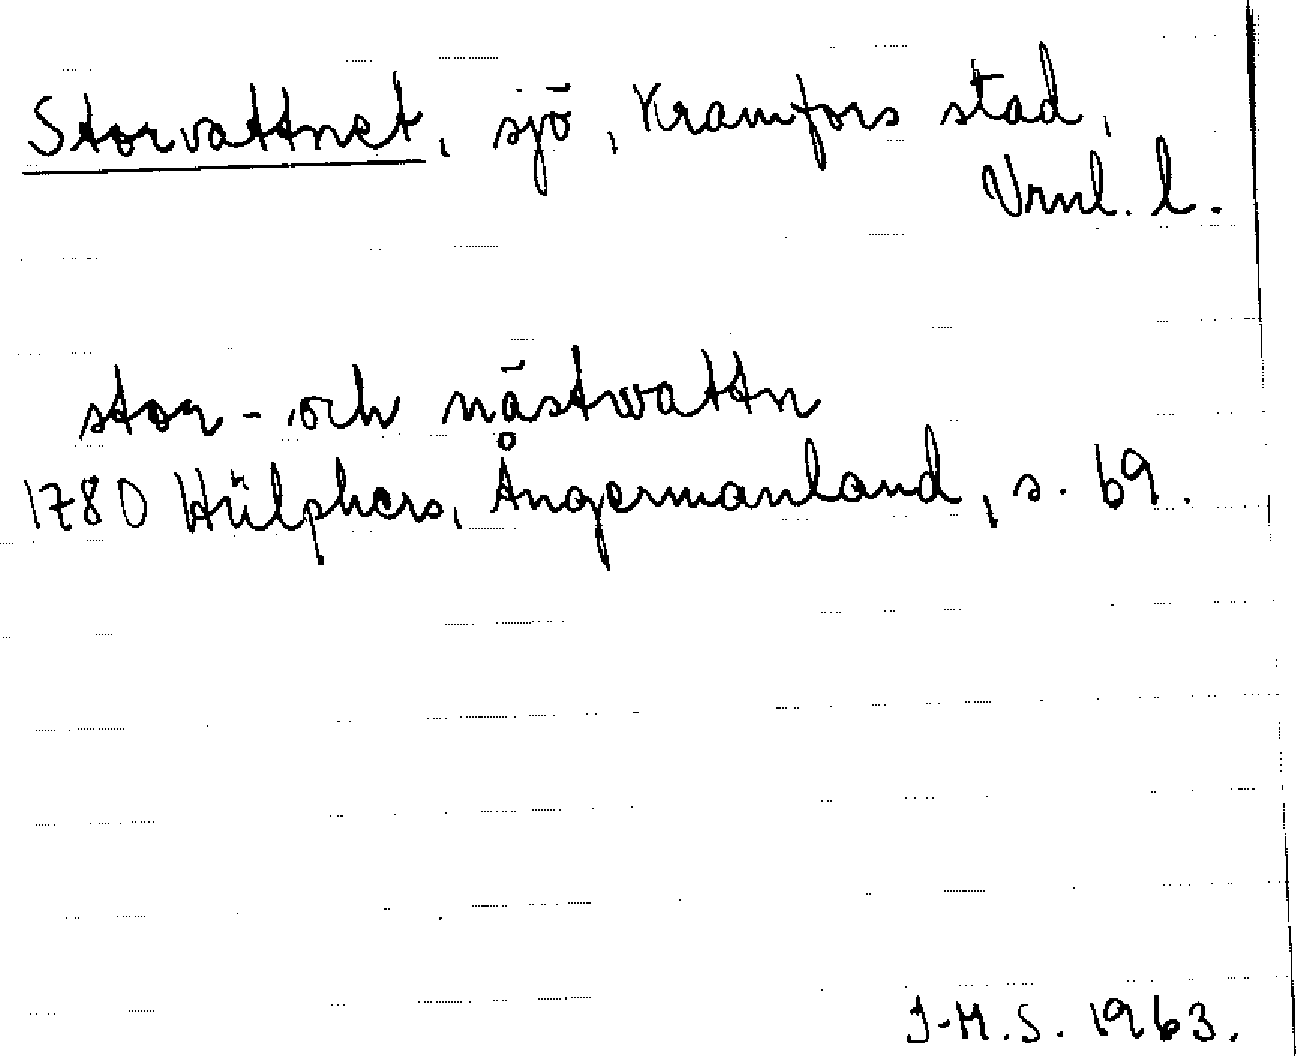 Storvattnet, sjö, Kramfors stad,
Vrnl. l.
stor- och nästwattn
1780 Hülphers, Ångermanland, s. 69.
J-M.S. 1963.